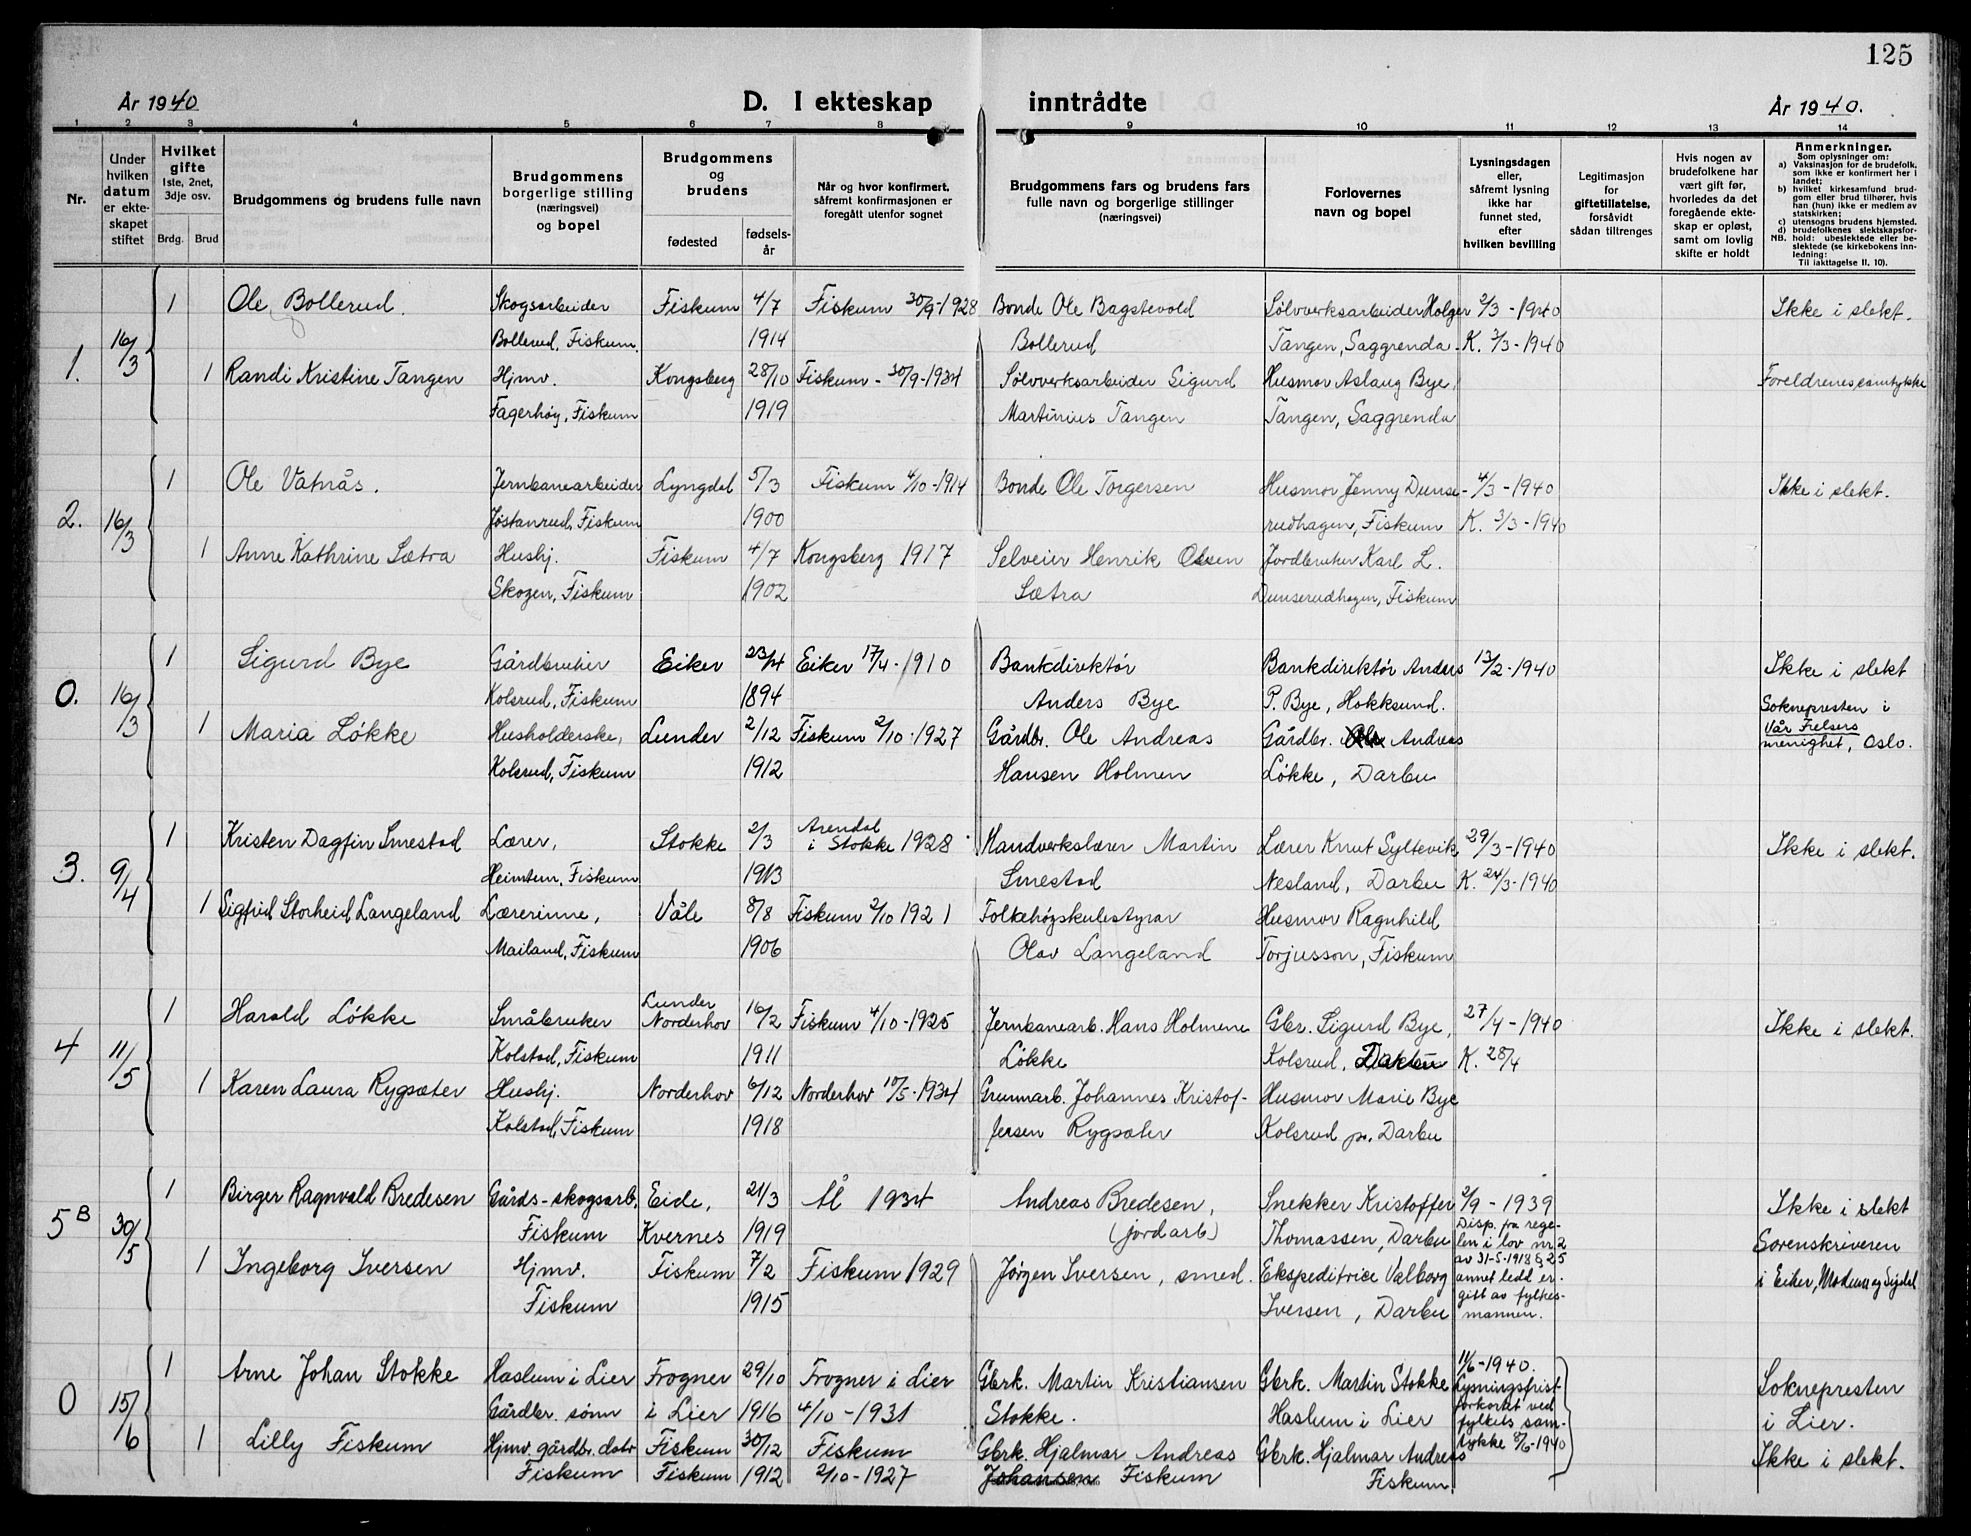 125
År 1940
D. I ekteskap inntrådte
År 1940.
1 2 3 4 5 6 7 8 9 10 11 12 13 14
Nr.
Under hvilken datum er ekteskapet stiftet
Hvilket gifte
1ste, 2net, 3dje osv.
Brdg. Brud
Brudgommens og brudens fulle navn
Brudgommens borgerlige stilling (næringsvei) og bopel
Brudgommens og brudens
fødested
fødselsår
Når og hvor konfirmert, såfremt konfirmasjonen er foregått utenfor sognet
Brudgommens fars og brudens fars fulle navn og borgerlige stillinger (næringsvei)
Forlovernes navn og bopel
Lysningsdagen eller, såfremt lysning ikke har funnet sted, efter hvilken bevilling
Legitimasjon for giftetillatelse, forsåvidt sådan tiltrenges
Hvis nogen av brudefolkene har vært gift før, hvorledes da det foregående ekteskap er opløst, samt om lovlig skifte er holdt
Anmerkninger.
Som oplysninger om:
a) Vaksinasjon for de brudefolk, som ikke er konfirmert her i landet;
b) hvilket kirkesamfund brudgom eller brud tilhører, hvis han (hun) ikke er medlem av statskirken;
c) utensogns brudens hjemsted.
d) brudefolkenes slektskapsforhold: ubeslektede eller beslektede (se kirkebokens innledning:
NB.
Til iakttagelse II, 10).
1. 16/3
1 Ole Bollerud. Skogsarbeider Fiskum 4/7 Fiskum 30/9-1928 Bonde Ole Bagstevold Sølvverksarbeider Holger 2/3-1940 Ikke i slekt.
Bollerud, Fiskum. 1914 Bollerud Tangen, Saggrenda. K. 3/3-1940
1 Randi Kristine Tangen Hjmv. Kongsberg 28/10 Fiskum - 30/9-1934 Sølvverksarbeider Sigurd Husmor Aslaug Bye, Foreldrenes samtykke
Fagerhøy, Fiskum 1919 Martinius Tangen Tangen, Saggrenda
2. 16/3
1 Ole Vatnås. Jernbanearbeider Lyngdal 5/3 Fiskum 4/10-1914 Bonde Ole Torgersen Husmor Jenny Dunse- 4/3-1940 Ikke i slekt.
Jøstanrud, Fiskum 1900 rudhagen, Fiskum K. 3/3-1940
1 Anne Kathrine Sætra Hushj. Fiskum 4/7 Kongsberg 1917 Selveier Henrik Olsen Jordbruker Karl L.
Skogen, Fiskum 1902 Sætra Dunserudhagen, Fiskum
0. 16/3
1 Sigurd Bye Gårdbruker Eiker 23/4 Eiker 17/4-1910 Bankdirektør Bankdirektør Anders 13/2-1940 Ikke i slekt
Kolsrud, Fiskum 1894 Anders Bye P. Bye, Hokksund. Soknepresten i
1 Maria Løkke Husholderske, Lunder 2/12 Fiskum 2/10-1927 Gårdbr. Ole Andreas Gårdbr. Ole Andreas Vår Frelsers
Kolsrud, Fiskum 1912 Hansen Holmen Løkke, Darbu menighet, Oslo.
3. 9/4
1 Kristen Dagfin Smestad Lærer, Stokke 2/3 Arendal i Stokke 1928 Handverkslærer Martin Lærer Knut Syltevik 29/3-1940 Ikke i slekt.
Heimtun, Fiskum 1913 Smestad Nesland, Darbu K. 24/3-1940
1 Sigfrid Storheid Langeland Lærerinne, Våle 8/8 Fiskum 2/10 1921 Folkehøgskulestyrar Husmor Ragnhild
Mailand, Fiskum 1906 Olav Langeland Torjusson, Fiskum
4 11/5
1 Harald Løkke Småbruker Lunder Norderhov 16/2 Fiskum 4/10-1925 Jernbanearb. Hans Holmene Gbr. Sigurd Bye, 27/4-1940 Ikke i slekt.
Kolstad, Fiskum 1911 Løkke Kolsrud, Darbu K. 28/4
1 Karen Laura Rygsæter Hushj. Norderhov 6/12 Norderhov 10/5-1934 Grunnarb. Johannes Kristof- Husmor Marie Bye
Kolstad, Fiskum 1918 fersen Rygsæter Kolsrud pr. Darbu
5 B 30/5
1 Birger Ragnvald Bredesen Gårds-skogsarb. Eide, 21/3 Ål 1934 Andreas Bredesen, Snekker Kristoffer 2/9-1939 Ikke i slekt
Fiskum Kvernes 1919 (jordarb) Thomassen, Darbu Disp. fra rege-
len i lov nr. 2 Sorenskriveren
1 Ingeborg Iversen Hjmv. Fiskum 7/2 Fiskum 1929 Jørgen Iversen, smed. Ekspeditrice Valborg av 31-5-1918 § 25 i Eiker, Modum og Sigdal
annet ledd er
Fiskum 1915 Iversen, Darbu gitt av fylkes-
mannen.
0 15/6
1 Arne Johan Stokke Haslum i Lier Frogner 29/10 Frogner i Lier Gbrk. Martin Kristiansen Gbrk. Martin Stokke 11/6-1940. Soknepresten
Gårdbr. sønn i Lier 1916 4/10-1931 Stokke. Haslum i Lier Lysningsfrist forkortet ved i Lier.
1 Lilly Fiskum Hjmv. gårdbr. datr Fiskum 30/12 Fiskum Gbrk. Hjalmar Andreas Gbrk. Hjalmar Andreas fylkets sam-
tykke 8/6-1940 Ikke i slekt.
Fiskum Fiskum 1912 2/10-1927 Johansen Fiskum Fiskum.